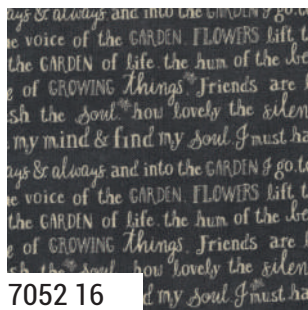 ays & always and into the GARDEN I go t
e voice of the GARDEN. FLOWERS lift t
the GARDEN of life. the hum of the be
of GROWING things. Friends are
sh the soul. how lovely the silen
my mind & find my soul. I must ha
ays & always and into the GARDEN I go t
e voice of the GARDEN. FLOWERS lift t
the GARDEN of life. the hum of the be
of GROWING things. Friends are
sh the soul how lovely the silen
d my soul. I must ha
7052 16